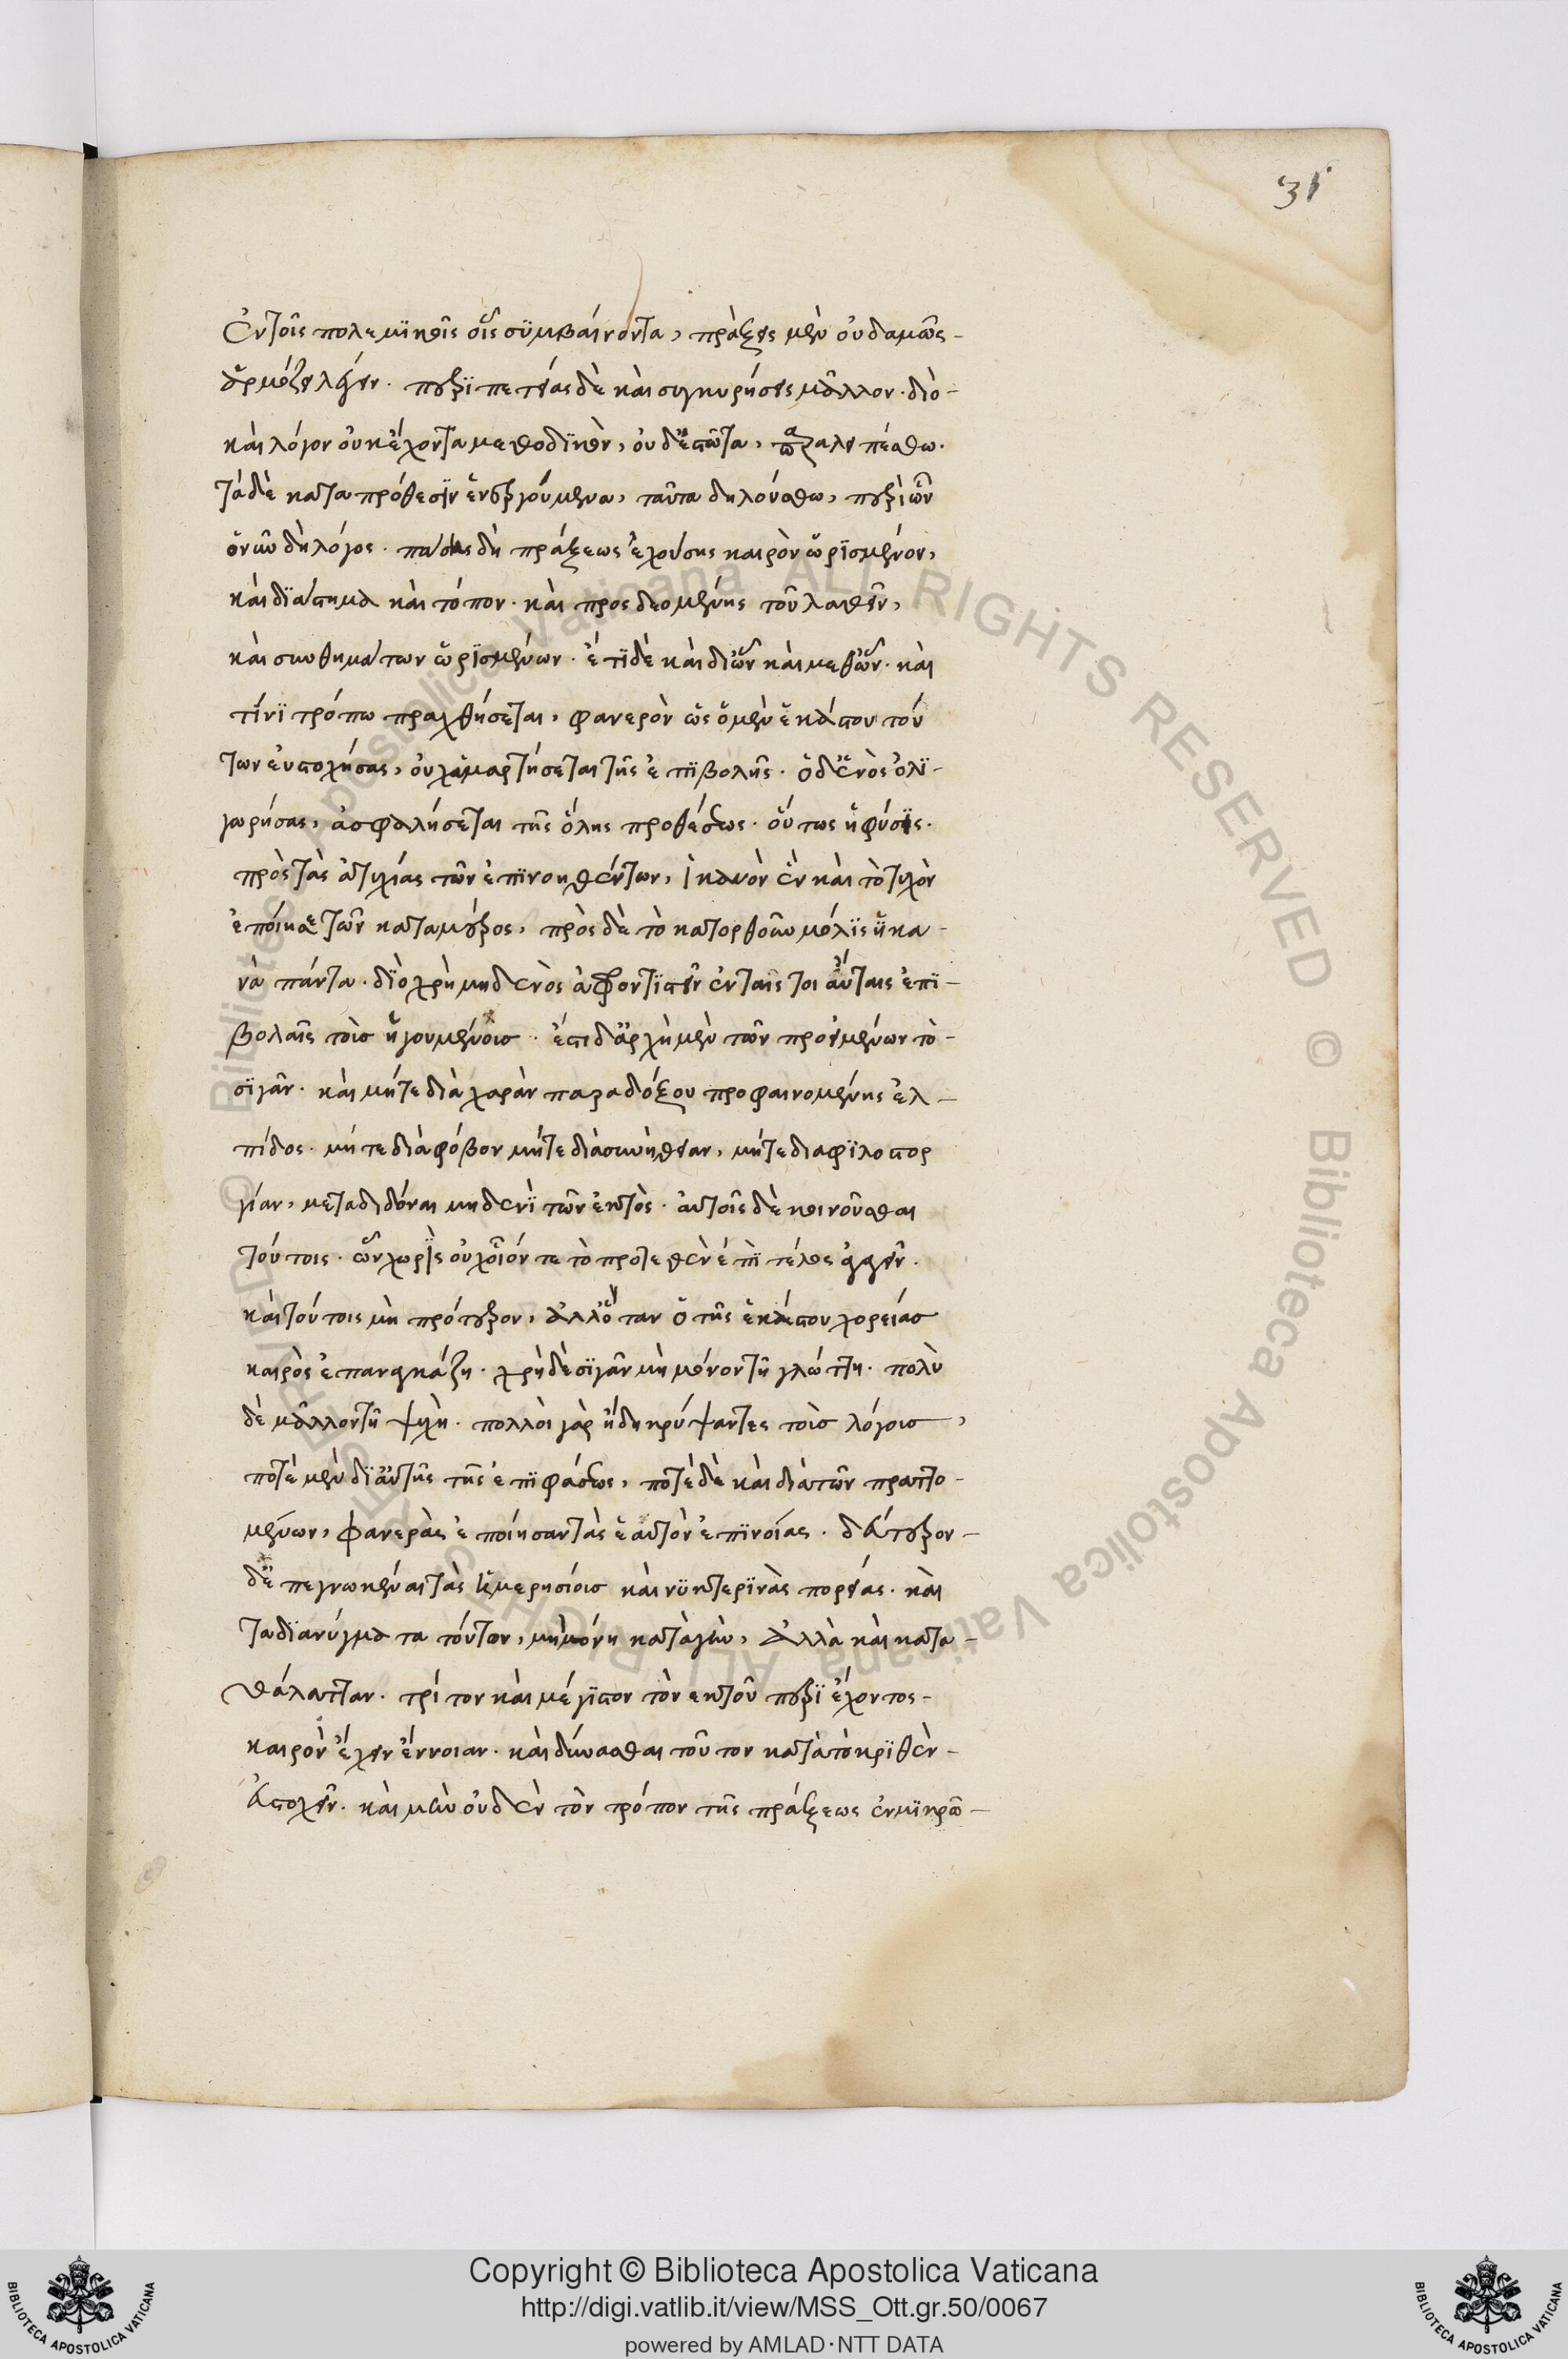 31
Ἐν τοῖς πολεμϊκοῖς οἷς σϋμβαίνοντα, πράξεις μὲν οὐδαμῶς -
ἁρμόζει λέγειν. περϊπετείας δὲ καὶ συγκυρήσεις μᾶλλον. διὸ -
καὶ λόγον οὐκ ἔχοντα μεθοδϊκὸν, οὐδἑστῶτα, παραλειπέσθω.
τὰ δὲ κατα πρόθεσϊν ἐνεργούμενα, ταῦτα δηλούσθω, περὶ ὧν
ὁ νῦν δὴ λόγος. πάσης δὴ πράξεως ἐχούσης καιρὸν ὡρϊσμένον,
καὶ δϊάστημα καὶ τόπον. καὶ προσδεομένης τοῦ λαθεῖν,
καὶ συνθημάτων ὡρϊσμένων. ἔτϊ δὲ καὶ διὧν καὶ μεθὧν. καὶ
τίνϊ τρόπω πραχθήσεται, φανερὸν ὡς ὁ μὲν ἑκάστου τού
των εὐστοχήσας, οὐχ ἁμαρτήσεται τῆς ἐπϊβολῆς. ὁ δἑνὸς ὀλϊ -
γωρήσας, ἀσφαλήσεται τῆς ὅλης προθέσεως. οὕτως ἡ φύσϊς.
πρὸς τὰς ἀτυχίας τῶν ἐπϊνοηθέντων, ἱκανὸν ἓν καὶ τὸ τυχὸν
ἐποίησε τῶν καταμέρος, πρὸς δὲ τὸ κατορθοῦν μόλϊς ἥκα -
νὰ πάντα. δϊὸ χρὴ μηδενὸς ἀφροντϊστεῖν ἐν ταῖς τοιαύταις ἐπϊ -
βολαῖς τοῖσ ἡγουμένοισ. ἔστι δἀρχὴ μὲν τῶν προειμένων τὸ -
σϊγᾶν. καὶ μήτε διὰ χαρὰν παραδόξου προφαινομένης ἐλ -
πίδος. μήτε διὰ φόβον μήτε διὰ συνήθειαν, μήτε διαφϊλοστορ
γίαν, μεταδιδόναι μηδενϊ τῶν ἐκτὸς. αὐτοῖς δὲ κοινοῦσθαι
τούτοις. ὧν χωρϊς οὐχ οἷόν τε τὸ προτεθὲν ἐπϊ τέλος ἀγαγεῖν.
καὶ τούτοις μὴ πρότερον, ἀλλὅταν ὁ τῆς ἑκάστου χορείασ
καιρὸς ἐπαναγκάζη. χρὴ δὲ σϊγᾶν μὴ μόνον τῆ γλώττη. πολὺ
δὲ μᾶλλον τῆ ψυχῆ. πολλοὶ γὰρ ἤδη κρύψαντες τοῖσ λόγοισ,
ποτὲ μὲν δϊ αὐτῆς τῆς ἐπϊφάσεως, ποτὲ δὲ καὶ διὰ τῶν πραττο -
μένων, φανερὰς ἐποίησαν τὰς ἑαυτὸν ἐπϊνοίας. δεύτερον -
δἐπεγνωκέναι τὰς ἡμερησίοισ καὶ νϋκτερϊνὰς πορείας. καὶ
τα δϊανύγματα τούτον, μὴ μόνη κατὰ γῆν, ἀλλὰ καὶ κατα -
θάλατταν. τρίτον καὶ μέγϊστον τὸν εκτοῦ περϊέχοντος -
καιρὸν ἔχειν ἔννοιαν. καὶ δύνασθαι τοῦτον κατὰ τὸ κρϊθὲν -
εὐστοχεῖν. καὶ μὴν οὐδὲν τὸν τρόπον τῆς πράξεως ἐν μϊκρῶ -
Copyright © Biblioteca Apostolica Vaticana
http://digi.vatlib.it/view/MSS_Ott.gr.50/0067
powered by AMLAD·NTT DATA